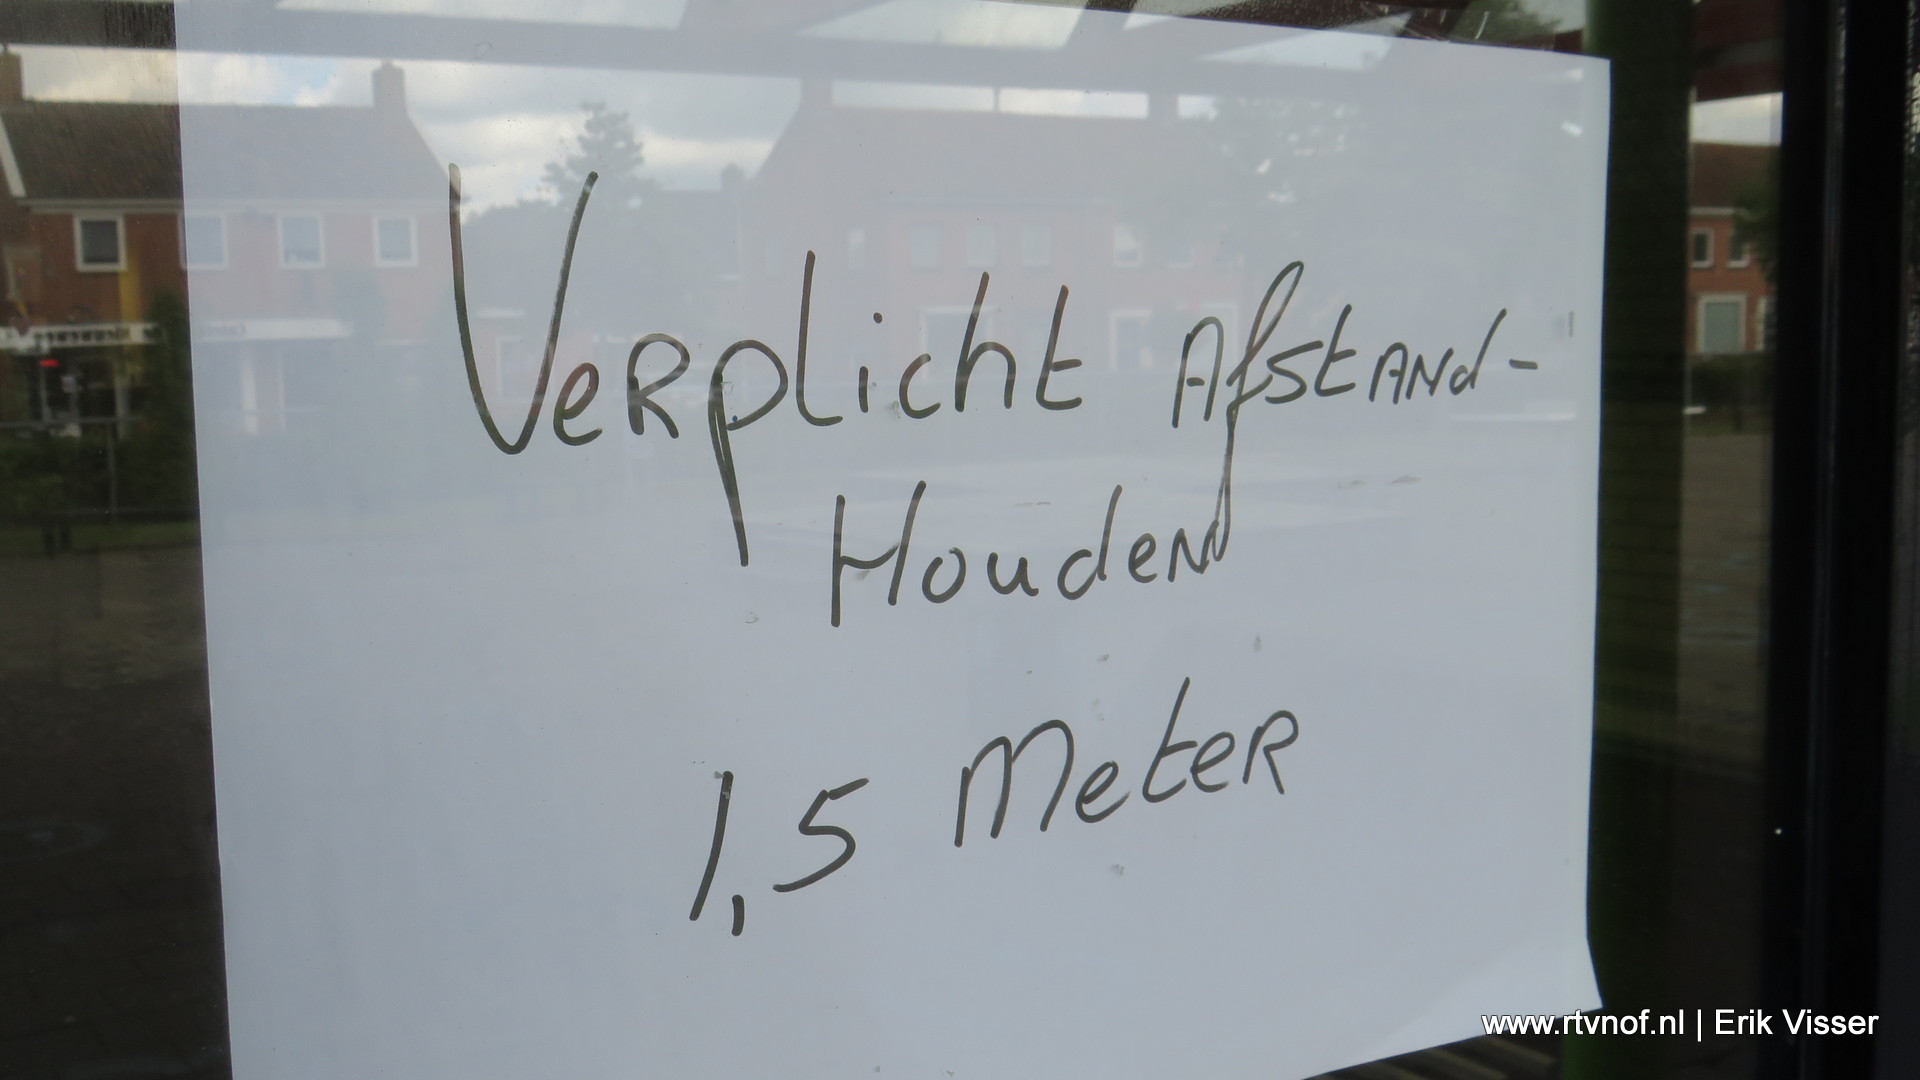 Verplicht Afstand-
Houden
1,5 Meter
www.rtvnof.nl | Erik Visser